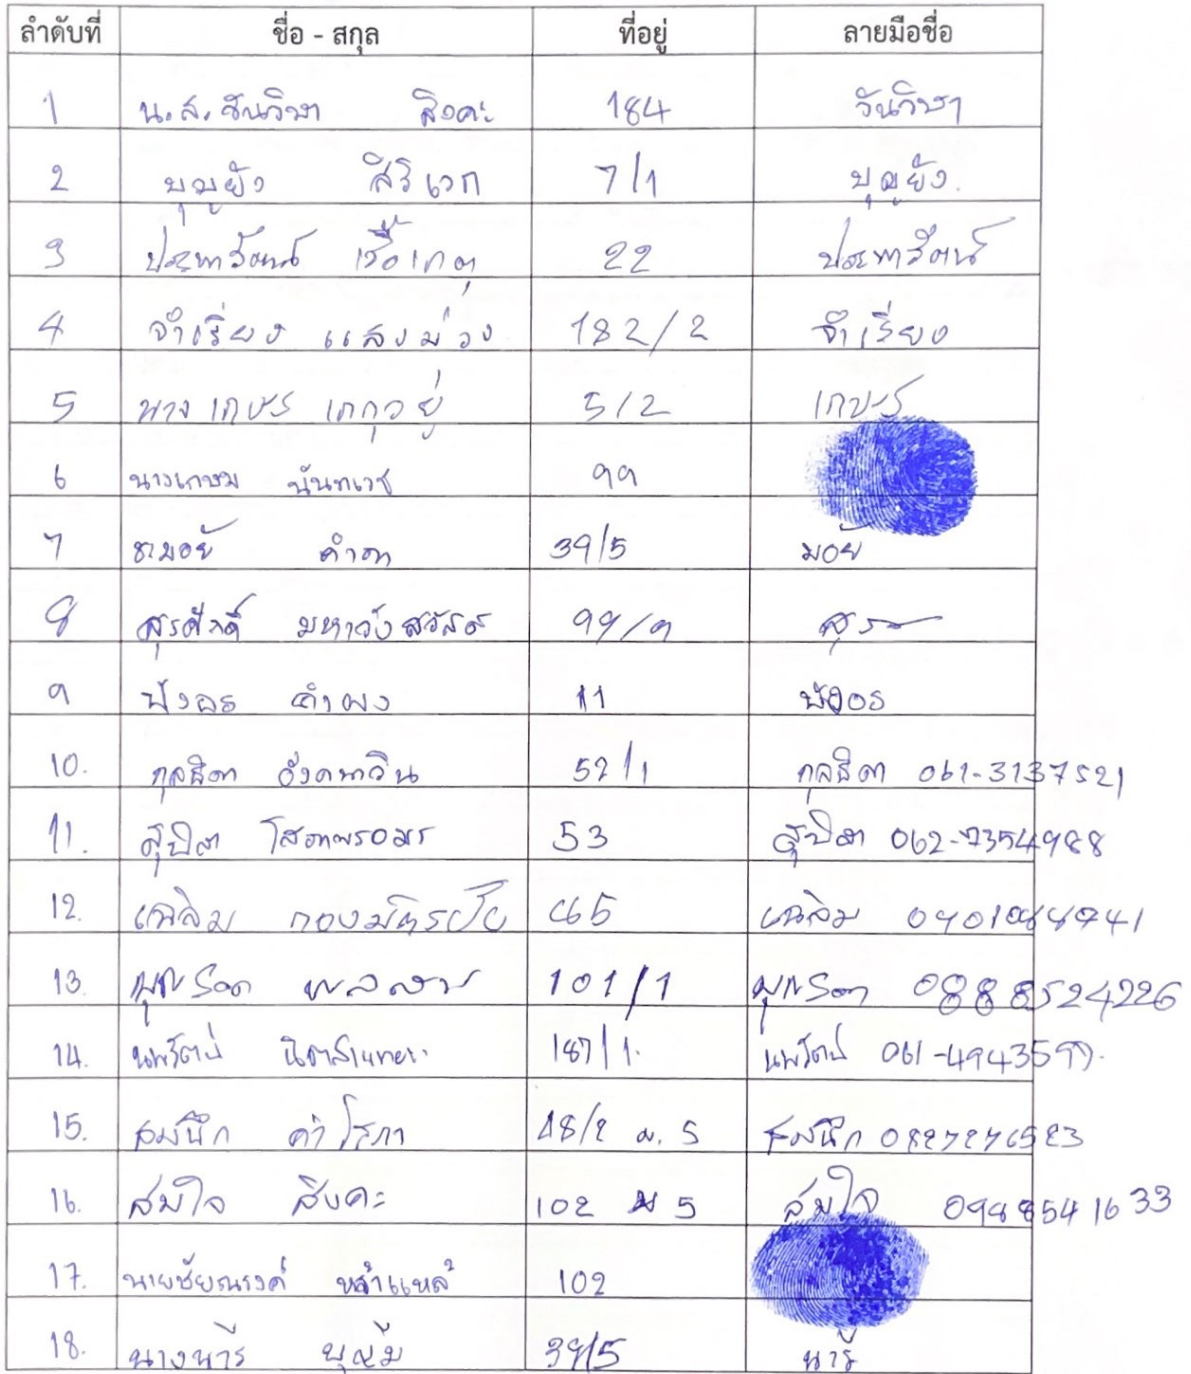 ลำดับที่ ชื่อ - สกุล ที่อยู่ ลายมือชื่อ
1 น.ส. วันวิษา สิงคะ 184 วันวิษา
2 บุญยัง สิริเวก 7/1 บุญยัง
3 ประพารัตน์ 22 ประพารัตน์
4 จำเรียง แสงม่วง 182/2 จำเรียง
5 นาง เกษร 5/2 เกษร
6 นางเกษม นันทเวช ๑๑
7 คำตา 39/5 มอย
8 สุรศักดิ์ มหาวังสวัสดิ์ 99/๑ สุร
9 บังอร คำผง 11 บังอร
10. กุลธิดา อังคนาวิน 52/1 กุลธิดา 061-3137521
11. สุปิตา 53 สุปิตา 062-7354988
12. เฉลิม 65 เฉลิม
13. บุญรอด พลสาร 101/1 0888524226
14. นพรัตน์ 187/1. นพรัตน์ 061-4943599.
15. สมนึก ค่าโสภา 48/2 ม. 5 สมนึก 0827276523
16. สมใจ สิงคะ 102 ม 5 สมใจ 0988541633
17. นายชัยณรงค์ หล้าแหล้ 102
18. นางนารี บุญมี 39/5 นารี